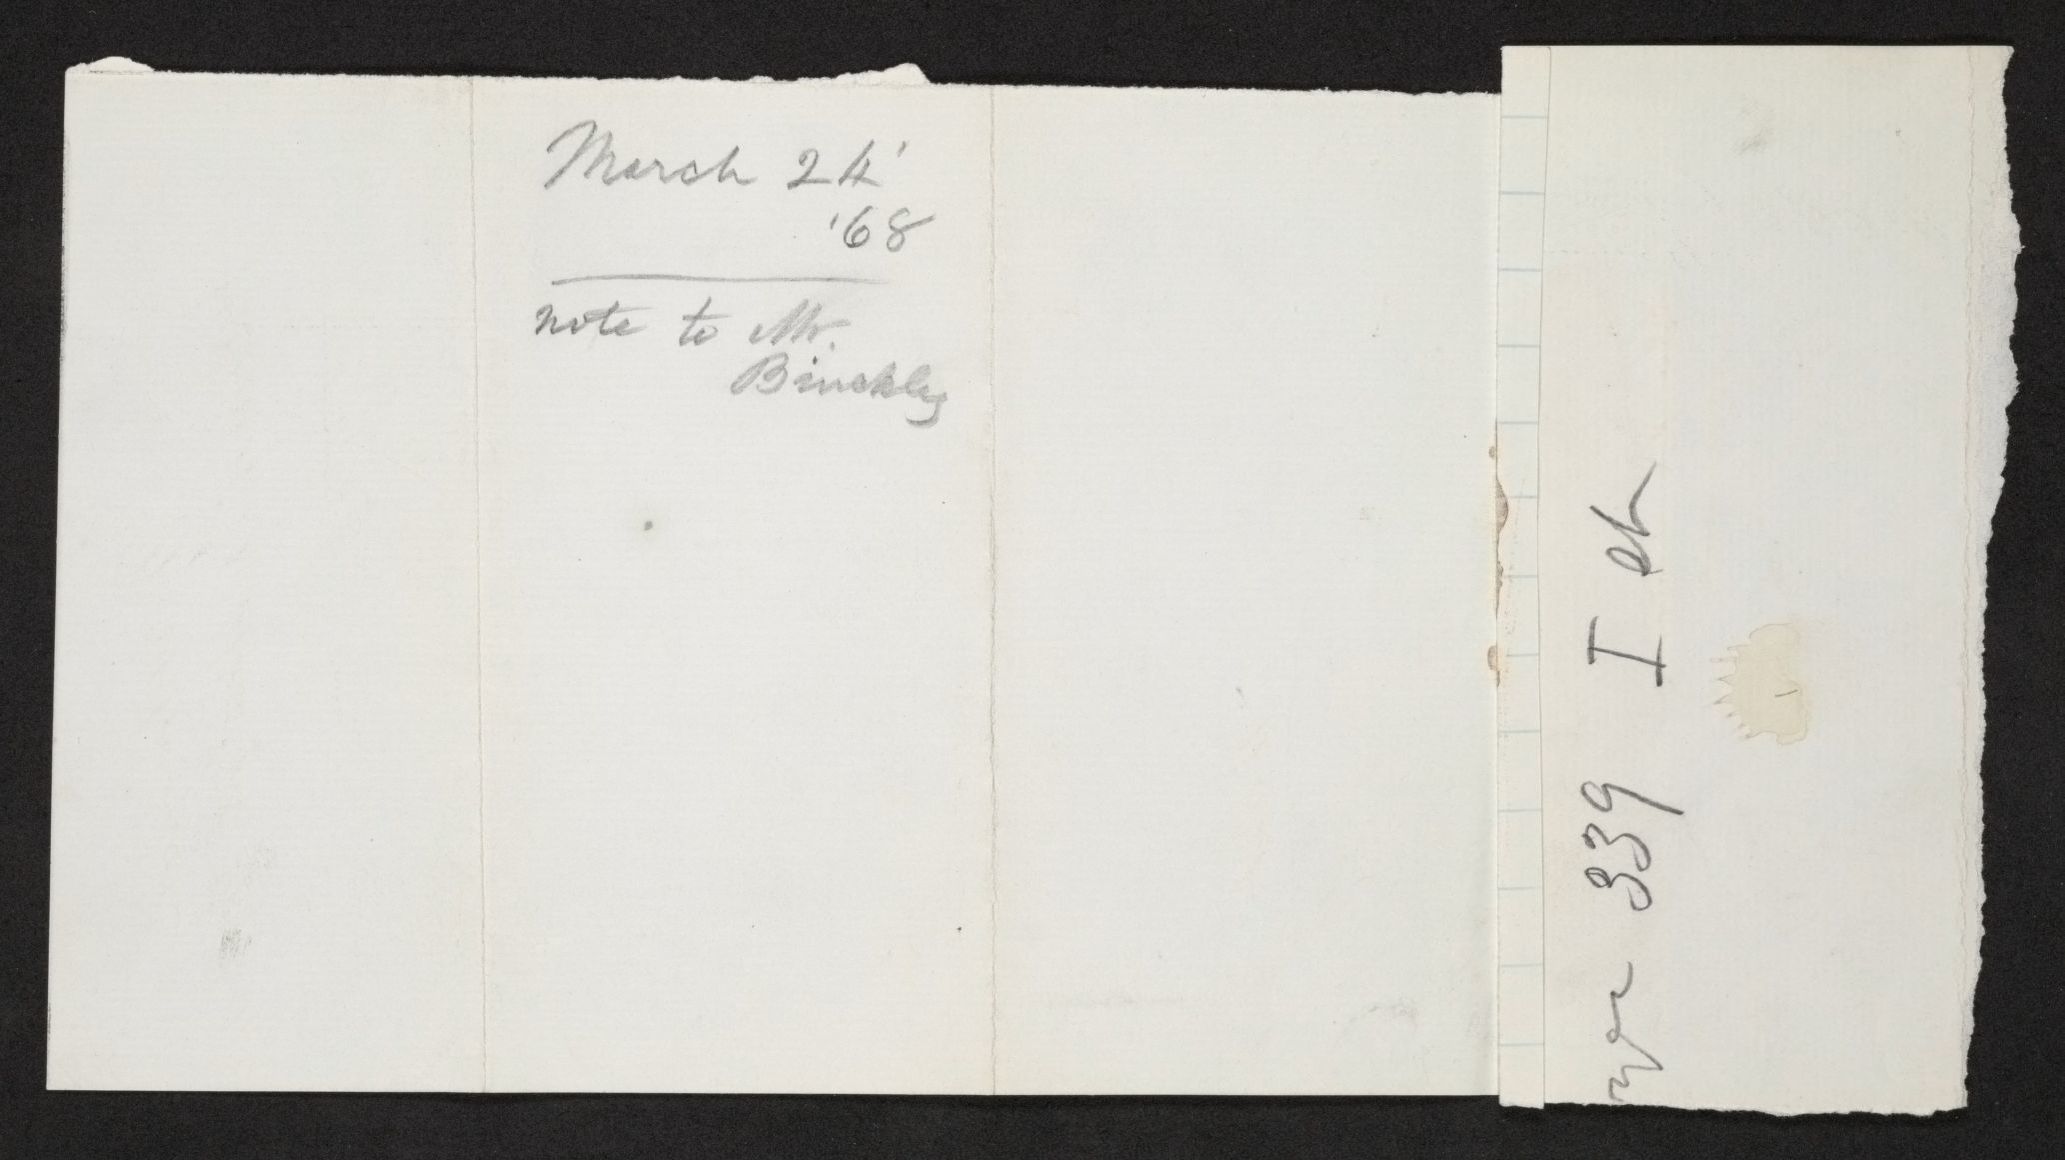 March 24'
'68
note to Mr.
Binckley
339 I